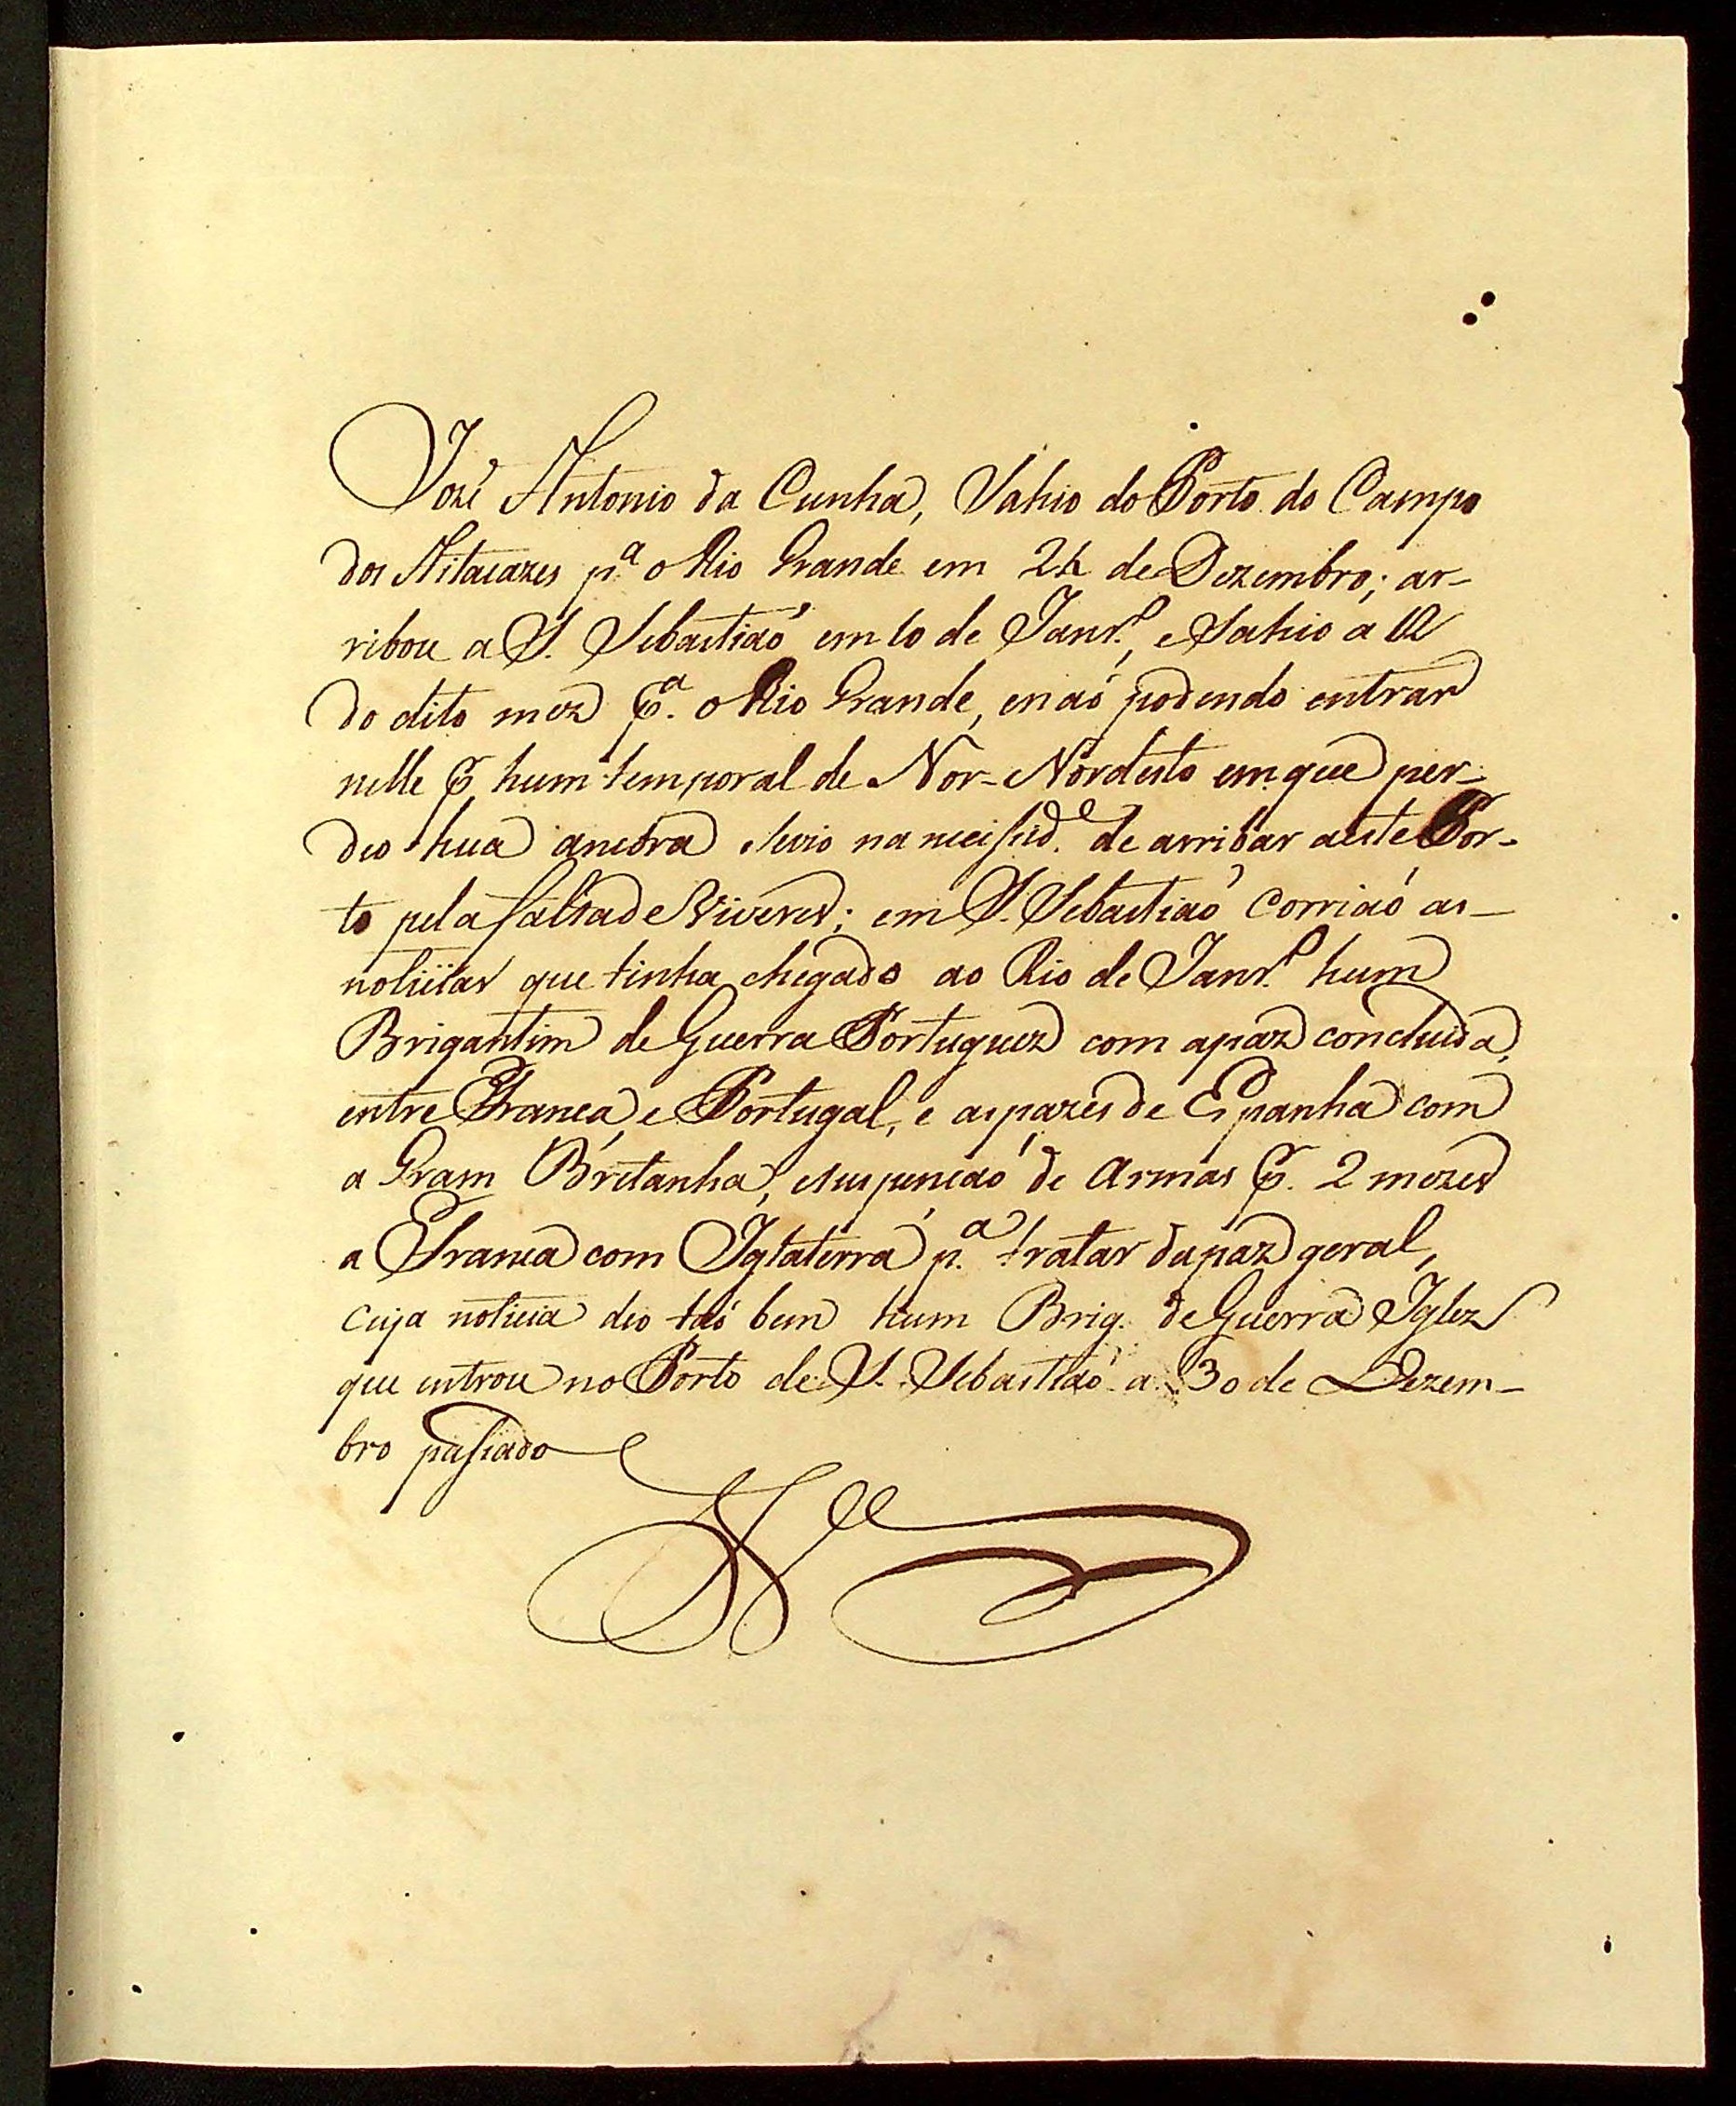 José Antonio da Cunha, Sahio do Porto do Campo
dos Aitacazes p.ª o Rio Grande em 24 de Dezembro; ar-
ribou a S. Sebastiaõ em 10 de Janr.º, e Sahio a 12
do dito mez p.ª o Rio Grande, e naõ podendo entrar
nelle p. hum temporal de Nor-Nordeste em que per-
deo hua ancora se vio na necessid.e de arribar a este Por-
to pela falta de Viveres; em S. Sebastiaõ corriaõ as
noticias que tinha chegado ao Rio de Janr.º hum
Brigantim de Guerra Portuguez com a paz concluida,
entre França, e Portugal, e as pazes de Espanha com
a Gram Bretanha, e suspençaõ de Armas p. 2 mezes
a França com Iglaterra p.ª tratar da paz geral,
cuja noticia deo taõ bem hum Brig. de Guerra Iglez
que entrou no Porto de S. Sebastiaõ a 30 de Dezem-
bro passado